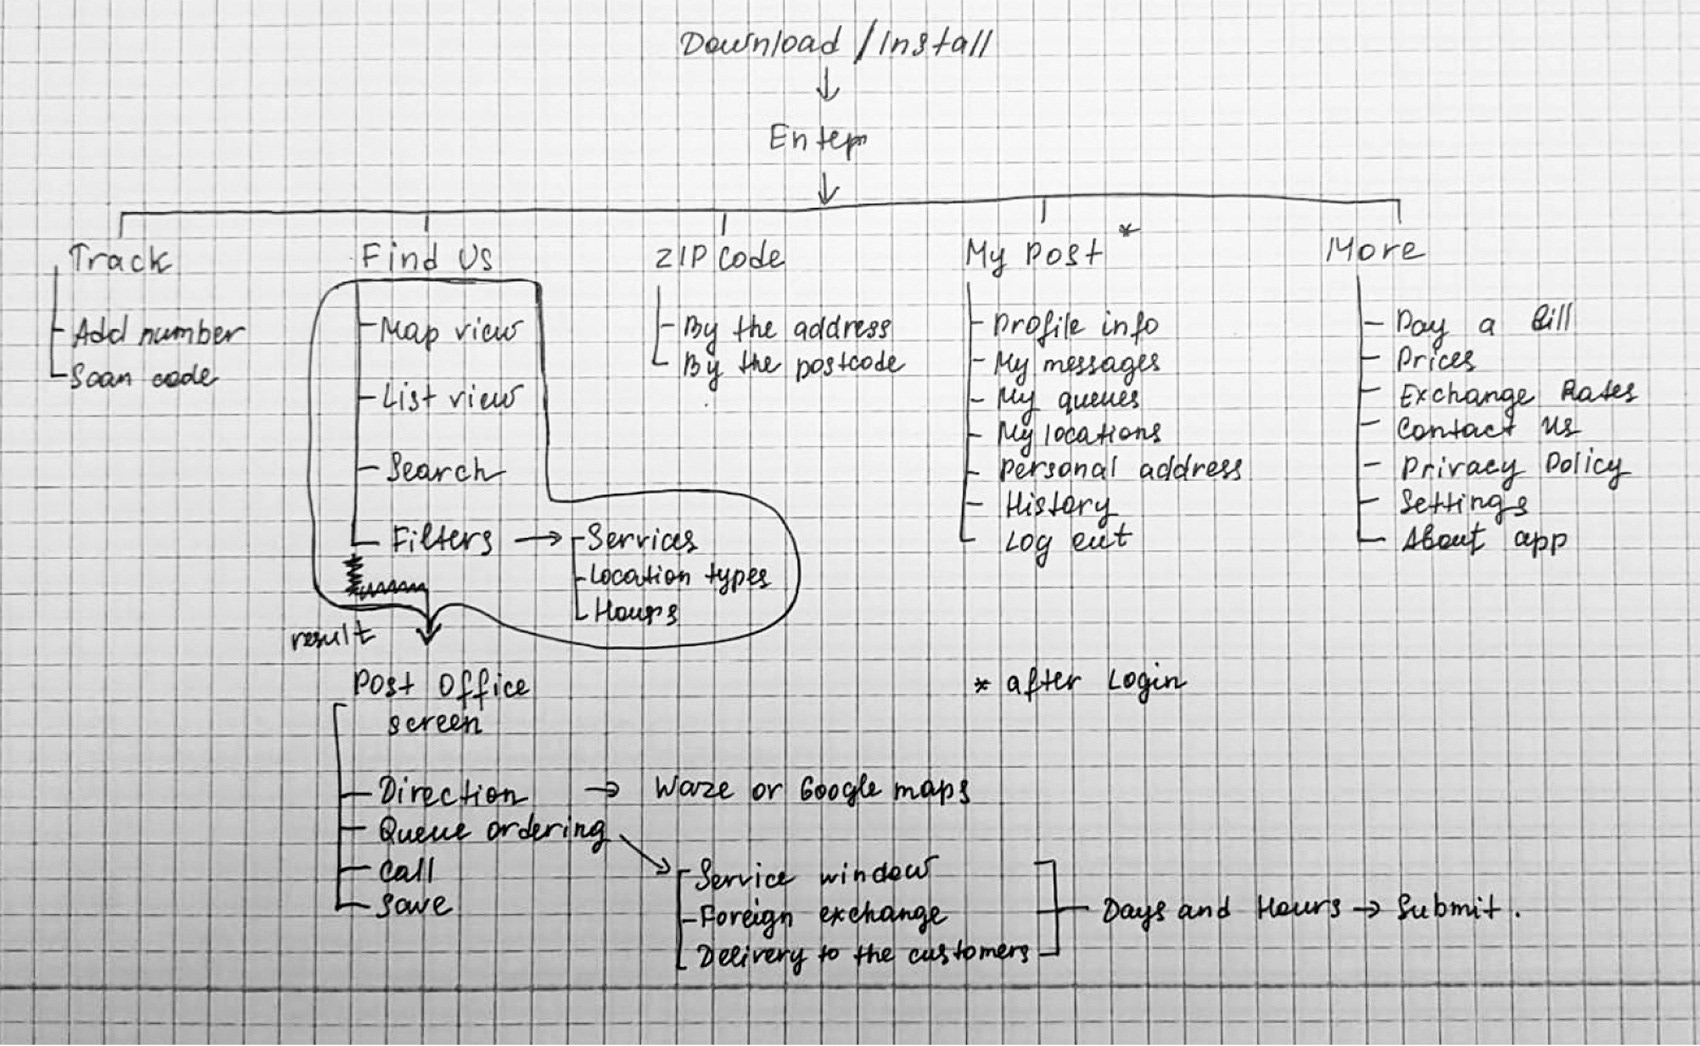 Download / Install
Enter
Track
Add number
Scan code
Find Us
Map view
List view
Search
Filters
Services
Location types
Hours
result
Post Office
screen
Direction → Waze or Google maps
Queue ordering
Call
Save
Service window
Foreign exchange
Delivery to the customers
Days and Hours → Submit.
ZIP Code
By the address
By the postcode
My Post *
Profile info
My messages
My queues
My locations
Personal address
History
Log out
* after Login
More
Pay a Bill
Prices
Exchange Rates
Contact us
Privacy Policy
Settings
About app